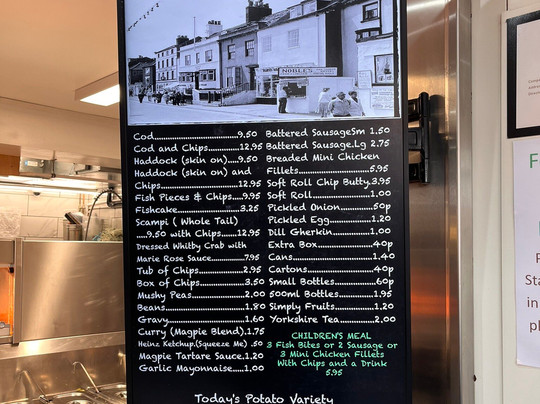 NOBLES
Cod..........................9.50
Cod and Chips................12.95
Haddock (skin on).....9.50
Haddock (skin on) and
Chips........................12.95
Fish Pieces & Chips....9.95
Fishcake.....................3.25
Scampi ( Whole Tail)
....9.50 with Chips.....12.95
Dressed Whitby Crab with
Marie Rose Sauce.............7.95
Tub of Chips.................2.95
Box of Chips.................3.50
Mushy Peas...................2.00
Beans........................1.80
Gravy........................1.60
Curry (Magpie Blend).1.75
Heinz Ketchup.(Squeeze Me) .50
Magpie Tartare Sauce.1.20
Garlic Mayonnaise......1.00
Battered SausageSm 1.50
Battered Sausage.Lg 2.75
Breaded Mini Chicken
Fillets......................5.95
Soft Roll Chip Butty.3.95
Soft Roll....................1.00
Pickled Onion................50p
Pickled Egg..................1.20
Dill Gherkin.................1.00
Extra Box....................40p
Cans.........................1.40
Cartons......................40p
Small Bottles................60p
500ml Bottles................1.95
Simply Fruits................1.20
Yorkshire Tea................2.00
CHILDREN'S MEAL
3 Fish Bites or 2 Sausage or
3 Mini Chicken Fillets
With Chips and a Drink
5.95
Today's Potato Variety
F
Sta
in
pl